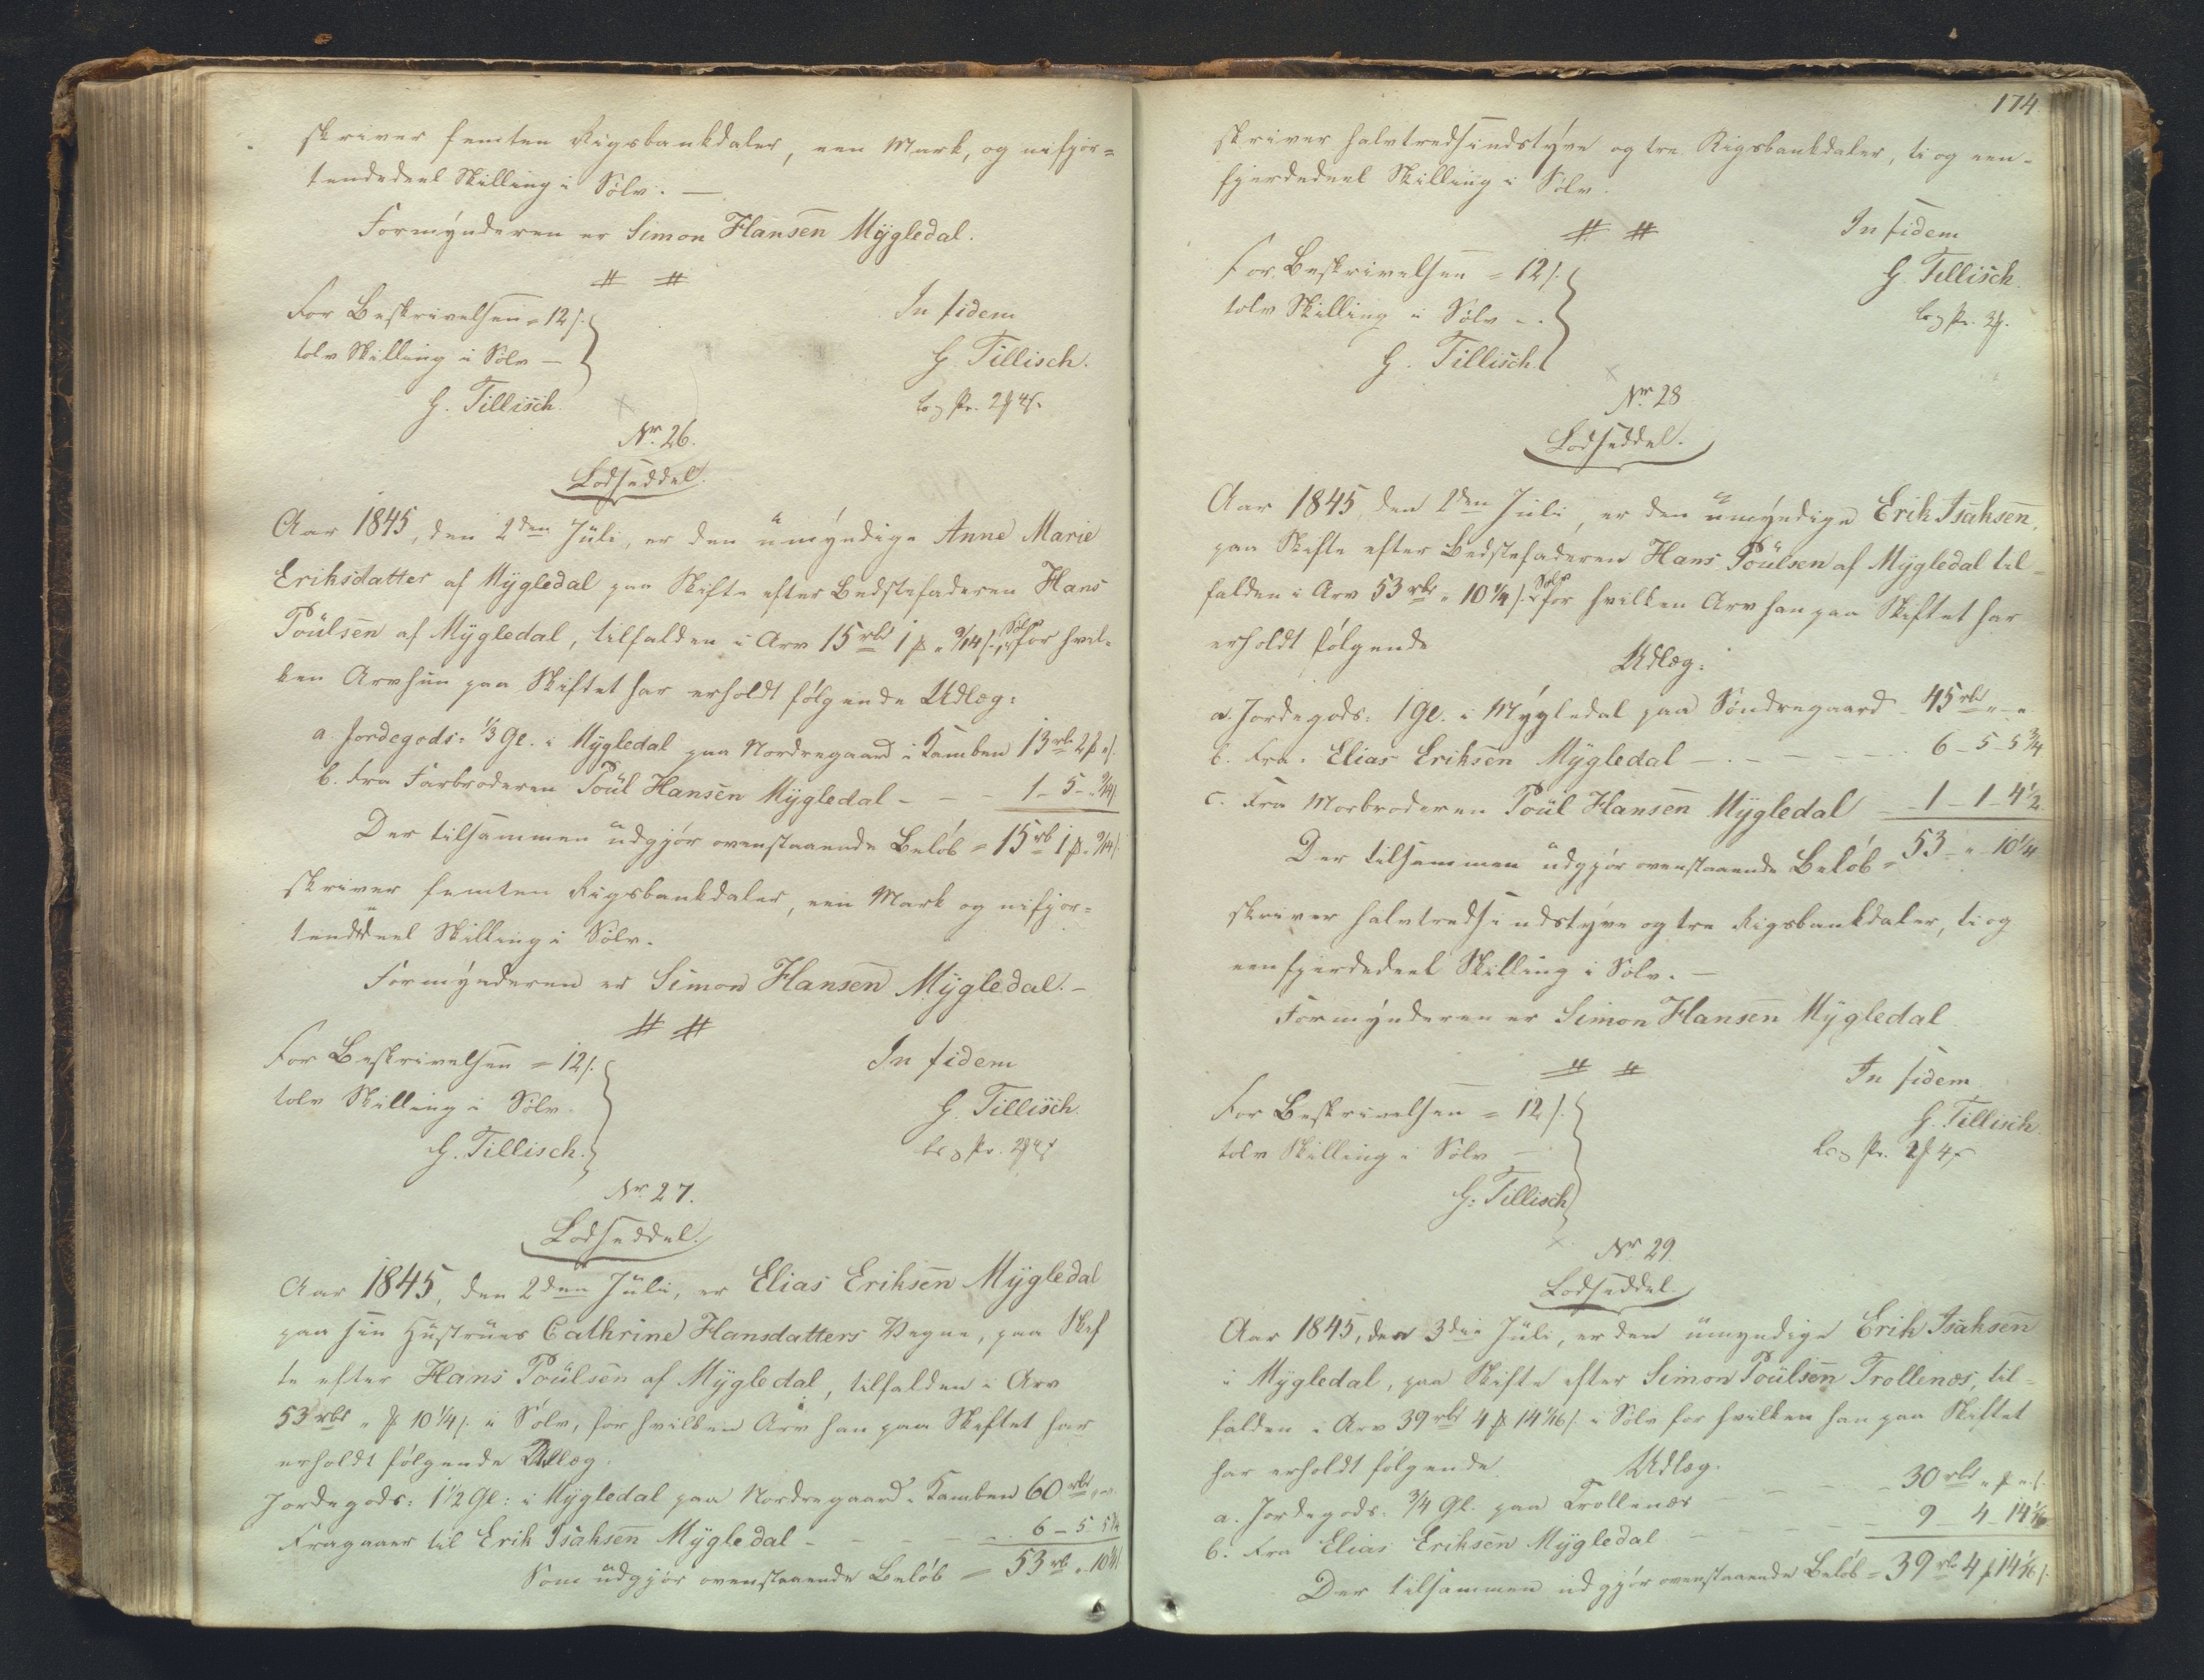 skriver femten Rigsbankdaler, een Mark, og nifjor=
tendedeel Skilling i Sølv. —
Formynderen er Simon Hansen Mygledal.
For Beskrivelsen = 12 s.
tolv Skilling i Sølv —
G. Tillisch.
In fidem
G. Tillisch.
Nr. 26.
Lodseddel.
Aar 1845, den 2den Juli, er den umyndige Anne Marie
Eriksdatter af Mygledal paa Skifte efter Bedstefaderen Hans
Poulsen af Mygledal, tilfalden i Arv 15 rbd 1 ꟗ „ 9/14 s. Sølv, for hvil-
ken Arv hun paa Skiftet har erholdt følgende Udlæg:
a. Jordegods: 1/3 Gl. i Mygledal paa Nordregaard i Kamben 13 rb 2 ꟗ „ s.
b. Fra Farbroderen Poul Hansen Mygledal - - - 1 - 5 - „ 9/14
Der tilsammen udgjør ovenstaaende Beløb = 15 rb 1 ꟗ „ 9/14 s.
skriver femten Rigsbankdaler, een Mark og nifjor=
tendedeel Skilling i Sølv.
Formynderen er Simon Hansen Mygledal. -
For Beskrivelsen = 12 s.
tolv Skilling i Sølv
G. Tillisch.
In fidem
G. Tillisch.
Nr. 27.
Lodseddel.
Aar 1845, den 2den Juli, er Elias Eriksen Mygledal
paa sin Hustrues Cathrine Hansdatters Vegne, paa Skif
te efter Hans Poulsen af Mygledal, tilfalden i Arv
53 rbd „ ꟗ 10 1/4 s. i Sølv, for hvilken Arv han paa Skiftet har
erholdt følgende Udlæg.
Jordegods: 1 1/2 Gl: i Mygledal paa Nordregaard i Kamben 60 rbd „ „
Fragaaer til Erik Isaksen Mygledal - - - 6 - 5 - 5 3/4
Som udgjør ovenstaaende Beløb = 53 rb „ 10 1/4
174
skriver halvtredsindstyve og tre Rigsbankdaler, ti og een-
fjerdedeel Skilling i Sølv.
For Beskrivelsen = 12 s.
tolv Skilling i Sølv - .
G. Tillisch
In fidem
G. Tillisch.
Nr. 28
Lodseddel.
Aar 1845, den 2den Juli, er den umyndige Erik Isaksen,
paa Skifte efter Bedstefaderen Hans Poulsen af Mygledal til-
falden i Arv 53 rbd „ 10 1/4 s. Sølv for hvilken Arv han paa Skiftet har
erholdt følgende
Udlæg:
a. Jordegods: 1 Gl. i Mygledal paa Søndregaard - 45 rbd „ - „
b. Fra Elias Eriksen Mygledal - - - - 6 - 5 - 5 3/4
c. Fra Morbroderen Poul Hansen Mygledal - 1 - 1 - 4 1/2
Der tilsammen udgjør ovenstaaende Beløb = 53 - „ - 10 1/4
skriver halvtredsindstyve og tre Rigsbankdaler, ti og
een fjerdedeel Skilling i Sølv. —
Formynderen er Simon Hansen Mygledal
For Beskrivelsen = 12 s.
tolv Skilling i Sølv —
G. Tillisch
In fidem
G. Tillisch.
Nr 29
Lodseddel.
Aar 1845, den 3die Juli, er den umyndige Erik Isaksen
i Mygledal, paa Skifte efter Simon Poulsen Trollenæs, til-
falden i Arv 39 rbd 4 ꟗ 14 1/16 s. i Sølv for hvilken han paa Skiftet
har erholdt følgende Udlæg.
a. Jordegods: 3/4 Gl. paa Trollenæs - - - - 30 rbd „ ꟗ „ s.
b. Fra Elias Eriksen Mygledal - - - - 9 - 4 - 14 1/16
Der tilsammen udgjør ovenstaaende Beløb = 39 rb 4 ꟗ 14 1/16 s.